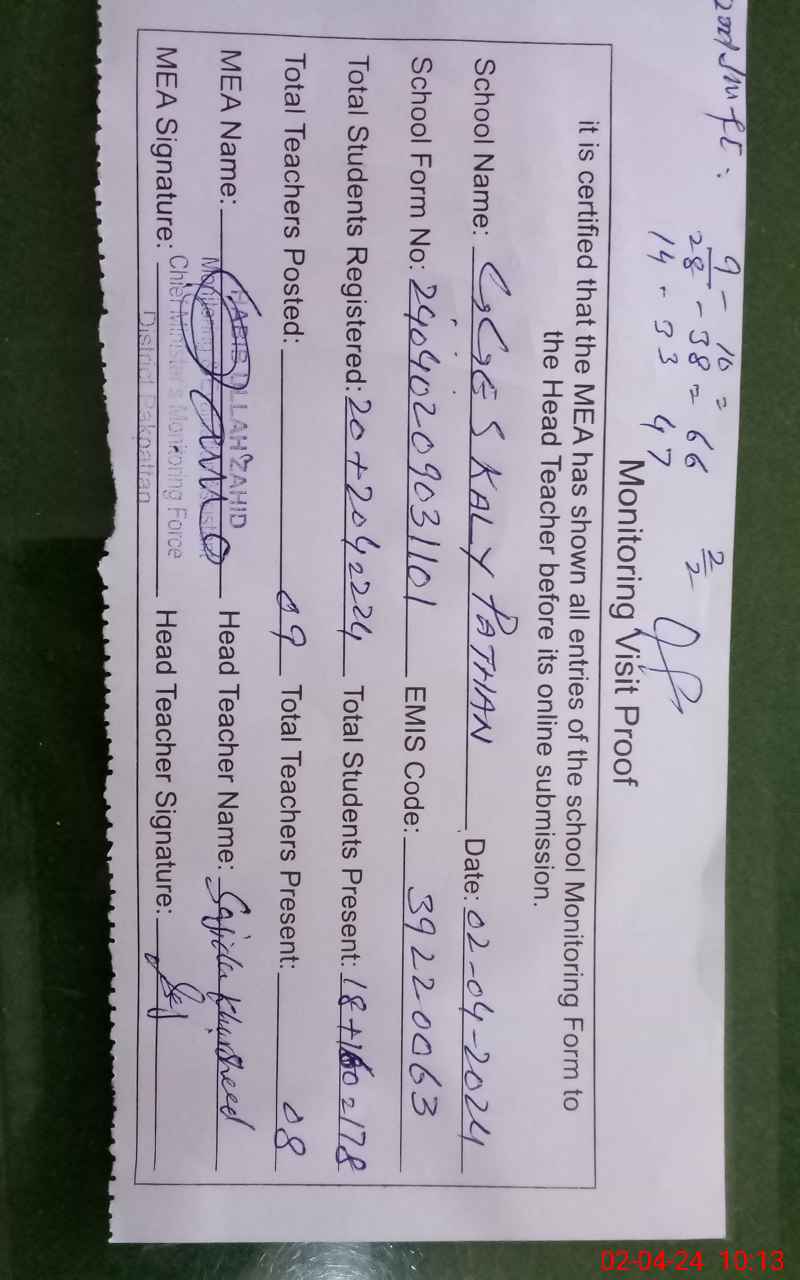 2nd Shift:
9 - 10 =
28 - 38 = 66
14 - 33 47
2/2
Monitoring Visit Proof
it is certified that the MEA has shown all entries of the school Monitoring Form to
the Head Teacher before its online submission.
School Name: GGES KALY PATHAN Date: 02-04-2024
School Form No: 24040209031101 EMIS Code: 39220063
Total Students Registered: 20+204=224 Total Students Present: 18+160=178
Total Teachers Posted: 09 Total Teachers Present: 08
MEA Name: HABIB ULLAH ZAHID Head Teacher Name: Sajida Khursheed
Monitoring
Chief Minister's Monitoring Force
District Pakpattan
MEA Signature: Head Teacher Signature:
02-04-24 10:13